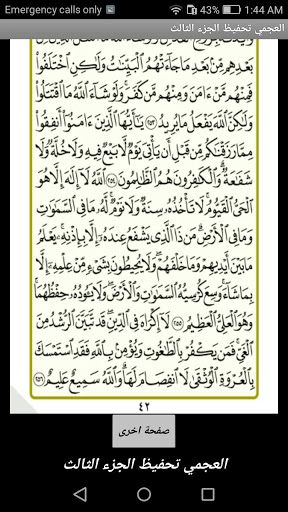 Emergency calls only
1:44 AM
العجمي تحفيظ الجزء الثالث
بَعْدِهِم مِّنۢ بَعْدِ مَا جَآءَتْهُمُ ٱلْبَيِّنَٰتُ وَلَٰكِنِ ٱخْتَلَفُوا۟
فَمِنْهُم مَّنْ ءَامَنَ وَمِنْهُم مَّن كَفَرَ ۚ وَلَوْ شَآءَ ٱللَّهُ مَا ٱقْتَتَلُوا۟
وَلَٰكِنَّ ٱللَّهَ يَفْعَلُ مَا يُرِيدُ ٢٥٣ يَٰٓأَيُّهَا ٱلَّذِينَ ءَامَنُوٓا۟ أَنفِقُوا۟
مِمَّا رَزَقْنَٰكُم مِّن قَبْلِ أَن يَأْتِىَ يَوْمٌ لَّا بَيْعٌ فِيهِ وَلَا خُلَّةٌ وَلَا
شَفَٰعَةٌ ۗ وَٱلْكَٰفِرُونَ هُمُ ٱلظَّٰلِمُونَ ٢٥٤ ٱللَّهُ لَآ إِلَٰهَ إِلَّا هُوَ
ٱلْحَىُّ ٱلْقَيُّومُ ۚ لَا تَأْخُذُهُۥ سِنَةٌ وَلَا نَوْمٌ ۚ لَّهُۥ مَا فِى ٱلسَّمَٰوَٰتِ
وَمَا فِى ٱلْأَرْضِ ۗ مَن ذَا ٱلَّذِى يَشْفَعُ عِندَهُۥٓ إِلَّا بِإِذْنِهِۦ ۚ يَعْلَمُ
مَا بَيْنَ أَيْدِيهِمْ وَمَا خَلْفَهُمْ ۖ وَلَا يُحِيطُونَ بِشَىْءٍ مِّنْ عِلْمِهِۦٓ إِلَّا
بِمَا شَآءَ ۚ وَسِعَ كُرْسِيُّهُ ٱلسَّمَٰوَٰتِ وَٱلْأَرْضَ ۖ وَلَا يَـُٔودُهُۥ حِفْظُهُمَا ۚ
وَهُوَ ٱلْعَلِىُّ ٱلْعَظِيمُ ٢٥٥ لَآ إِكْرَاهَ فِى ٱلدِّينِ ۖ قَد تَّبَيَّنَ ٱلرُّشْدُ مِنَ
ٱلْغَىِّ ۚ فَمَن يَكْفُرْ بِٱلطَّٰغُوتِ وَيُؤْمِنۢ بِٱللَّهِ فَقَدِ ٱسْتَمْسَكَ
بِٱلْعُرْوَةِ ٱلْوُثْقَىٰ لَا ٱنفِصَامَ لَهَا ۗ وَٱللَّهُ سَمِيعٌ عَلِيمٌ ٢٥٦
٤٢
صفحة اخرى
العجمي تحفيظ الجزء الثالث